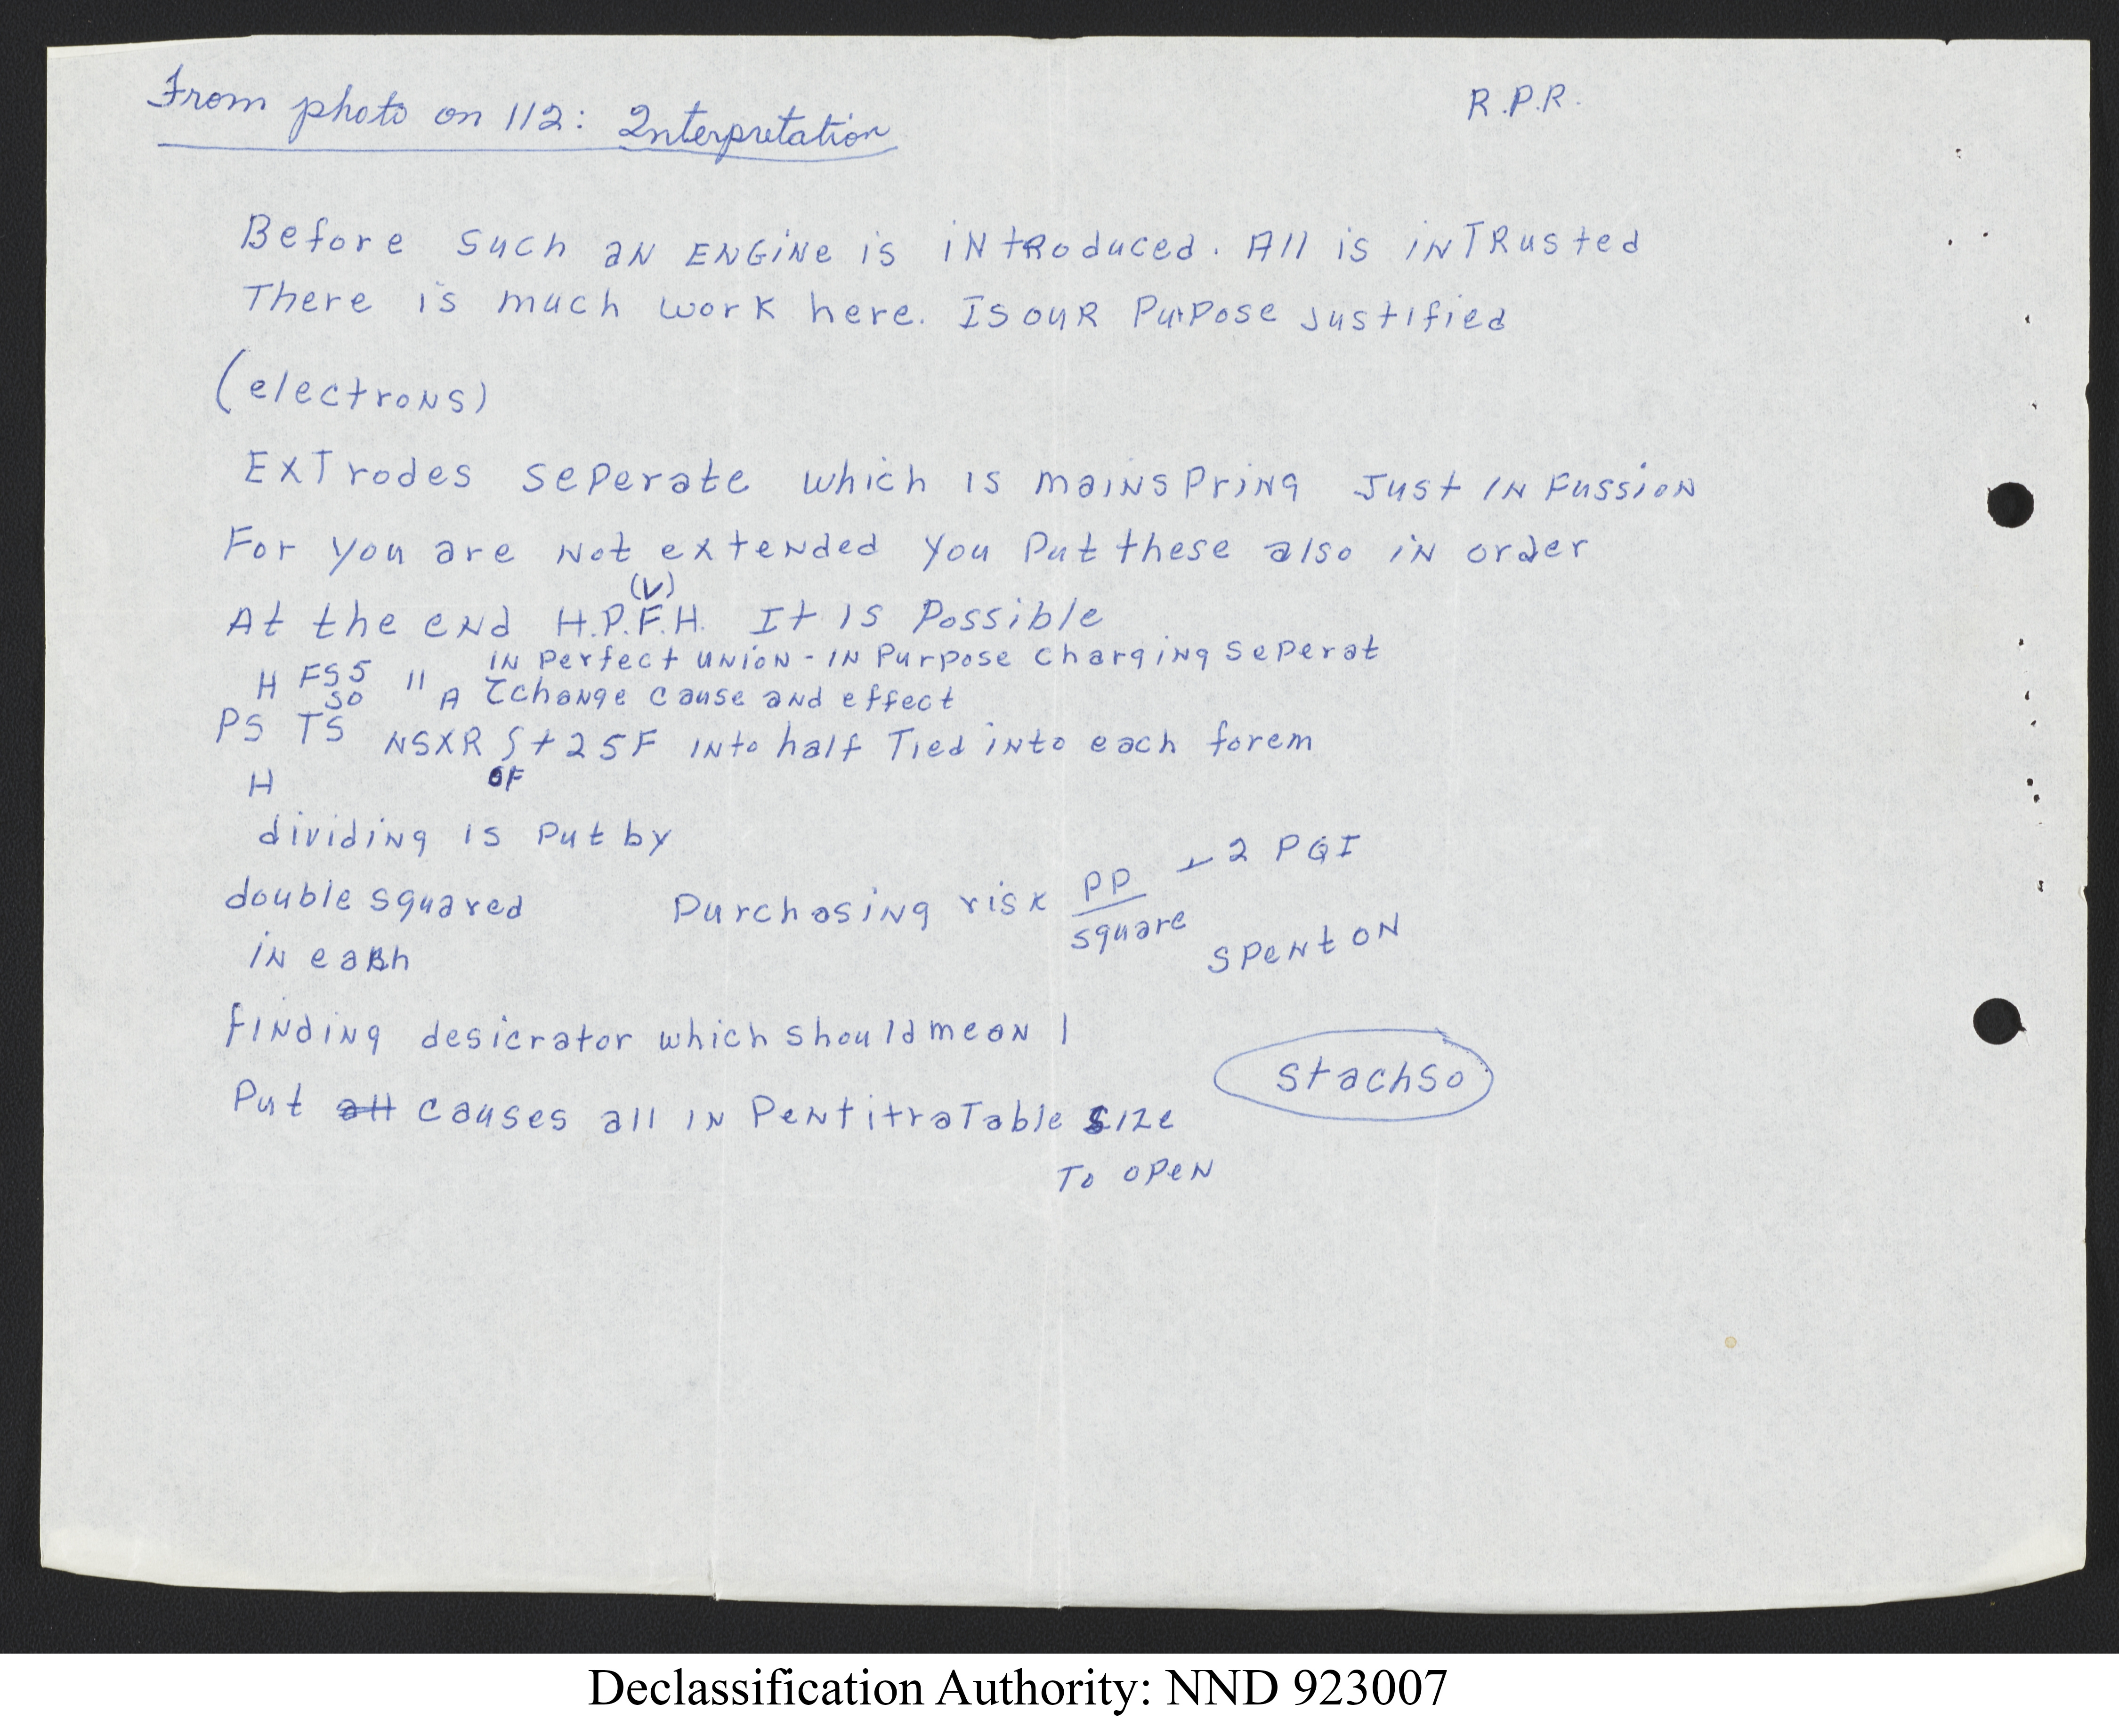 From photo on 112: Interpretation
R.P.R.
Before such an ENGiNe is iNtRoduced. All is iNTRusted
There is much work here. Is ouR Purpose Justified
(electroNs)
ExTrodes seperate which is mainspring Just IN Fussion
For you are Not extended you Put these also in order
(V)
At the end H.P.F.H. It is Possible
IN Perfect union - IN Purpose Charging Seperat
H FS5 "
so A change cause and effect
PS TS NSXR S+25F INto half Tied into each forem
H OF
dividing is Put by
double squared Purchasing risk PP - 2 PQI
square
in each spent on
finding desicrator which should mean 1
stachso
Put all causes all in PentitraTable size
To open
Declassification Authority: NND 923007